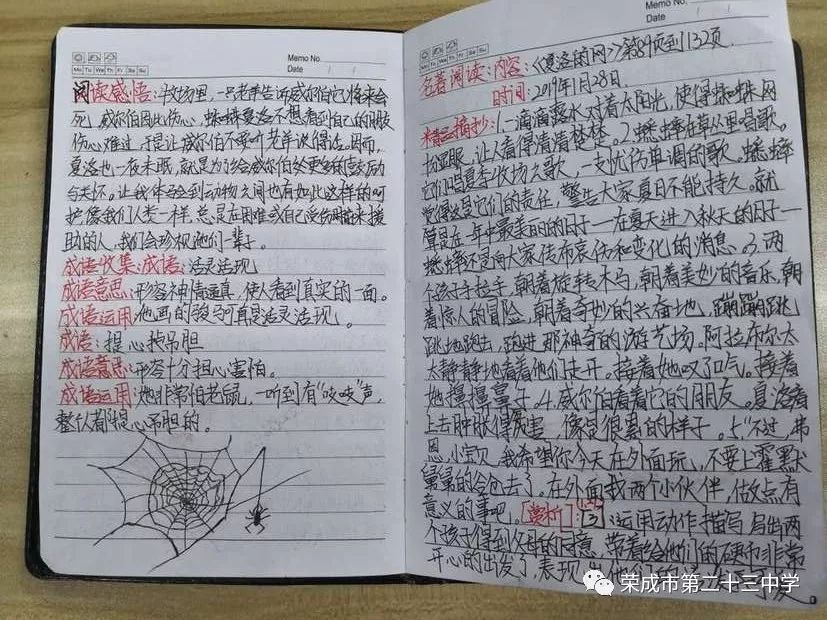 Memo No.
Date
Mo Tu We Th Fr Sa Su
阅读感悟:牧场里,一只老羊告诉威尔伯它将来会
死,威尔伯因此伤心,蜘蛛夏洛不想看到自己的朋友
伤心难过,于是让威尔伯不要听老羊说得话。因而,
夏洛也一夜未眠,就是为了给威尔伯的更多的鼓励
与关怀。让我体会到动物之间也有如此这样的呵
护像我们人类一样,总是在困难或自己受伤时前来援
助的人,我们会珍视他们一辈子。
成语收集:成语:活灵活现
成语意思:形容神情逼真,使人看到真实的一面。
成语运用:他画的骏马可真是活灵活现。
成语:提心吊胆
成语意思:形容十分担心害怕。
成语运用:她非常怕老鼠,一听到有“吱吱”声,
整个人都提心吊胆的。
Memo No.
Date
Mo Tu We Th Fr Sa Su
名著阅读:内容:《夏洛的网》第89页到132页.
时间:2019年1月28日.
精彩摘抄:1.一滴滴露水对着太阳光,使得蜘蛛网
显眼,让人看得清清楚楚。2.蟋蟀在草丛里唱歌。
它们唱夏季收场之歌,一支忧伤单调的歌。蟋蟀
觉得这是它们的责任,警告大家夏日不能持久。就
算是在一年中最美丽的的日子——在夏天进入秋天的日子——
蟋蟀还是向大家传布哀伤和变化的消息。3.两
个孩子手拉手,朝着旋转木马,朝着美妙的音乐,朝
着惊人的冒险,朝着奇妙的兴奋地,蹦蹦跳
跳地跑去,跑进那神奇的游艺场。阿拉布尔太
太静静地看着他们走开。接着她叹了口气。接着
她擤擤鼻子。4.威尔伯看着它的朋友。夏洛看
上去肿胀得厉害,像是很累的样子。5.“不过,弗
恩,小宝贝,我希望你今天在外面玩,不要上霍默
舅舅的谷仓去了。在外面找两个小伙伴,做点有
意义的事吧。[赏析]:[3]:运用动作描写,写出两
个孩子得到父母的同意,带着给他们的硬币非常
开心的出发了,表现
荣成市第二十三中学